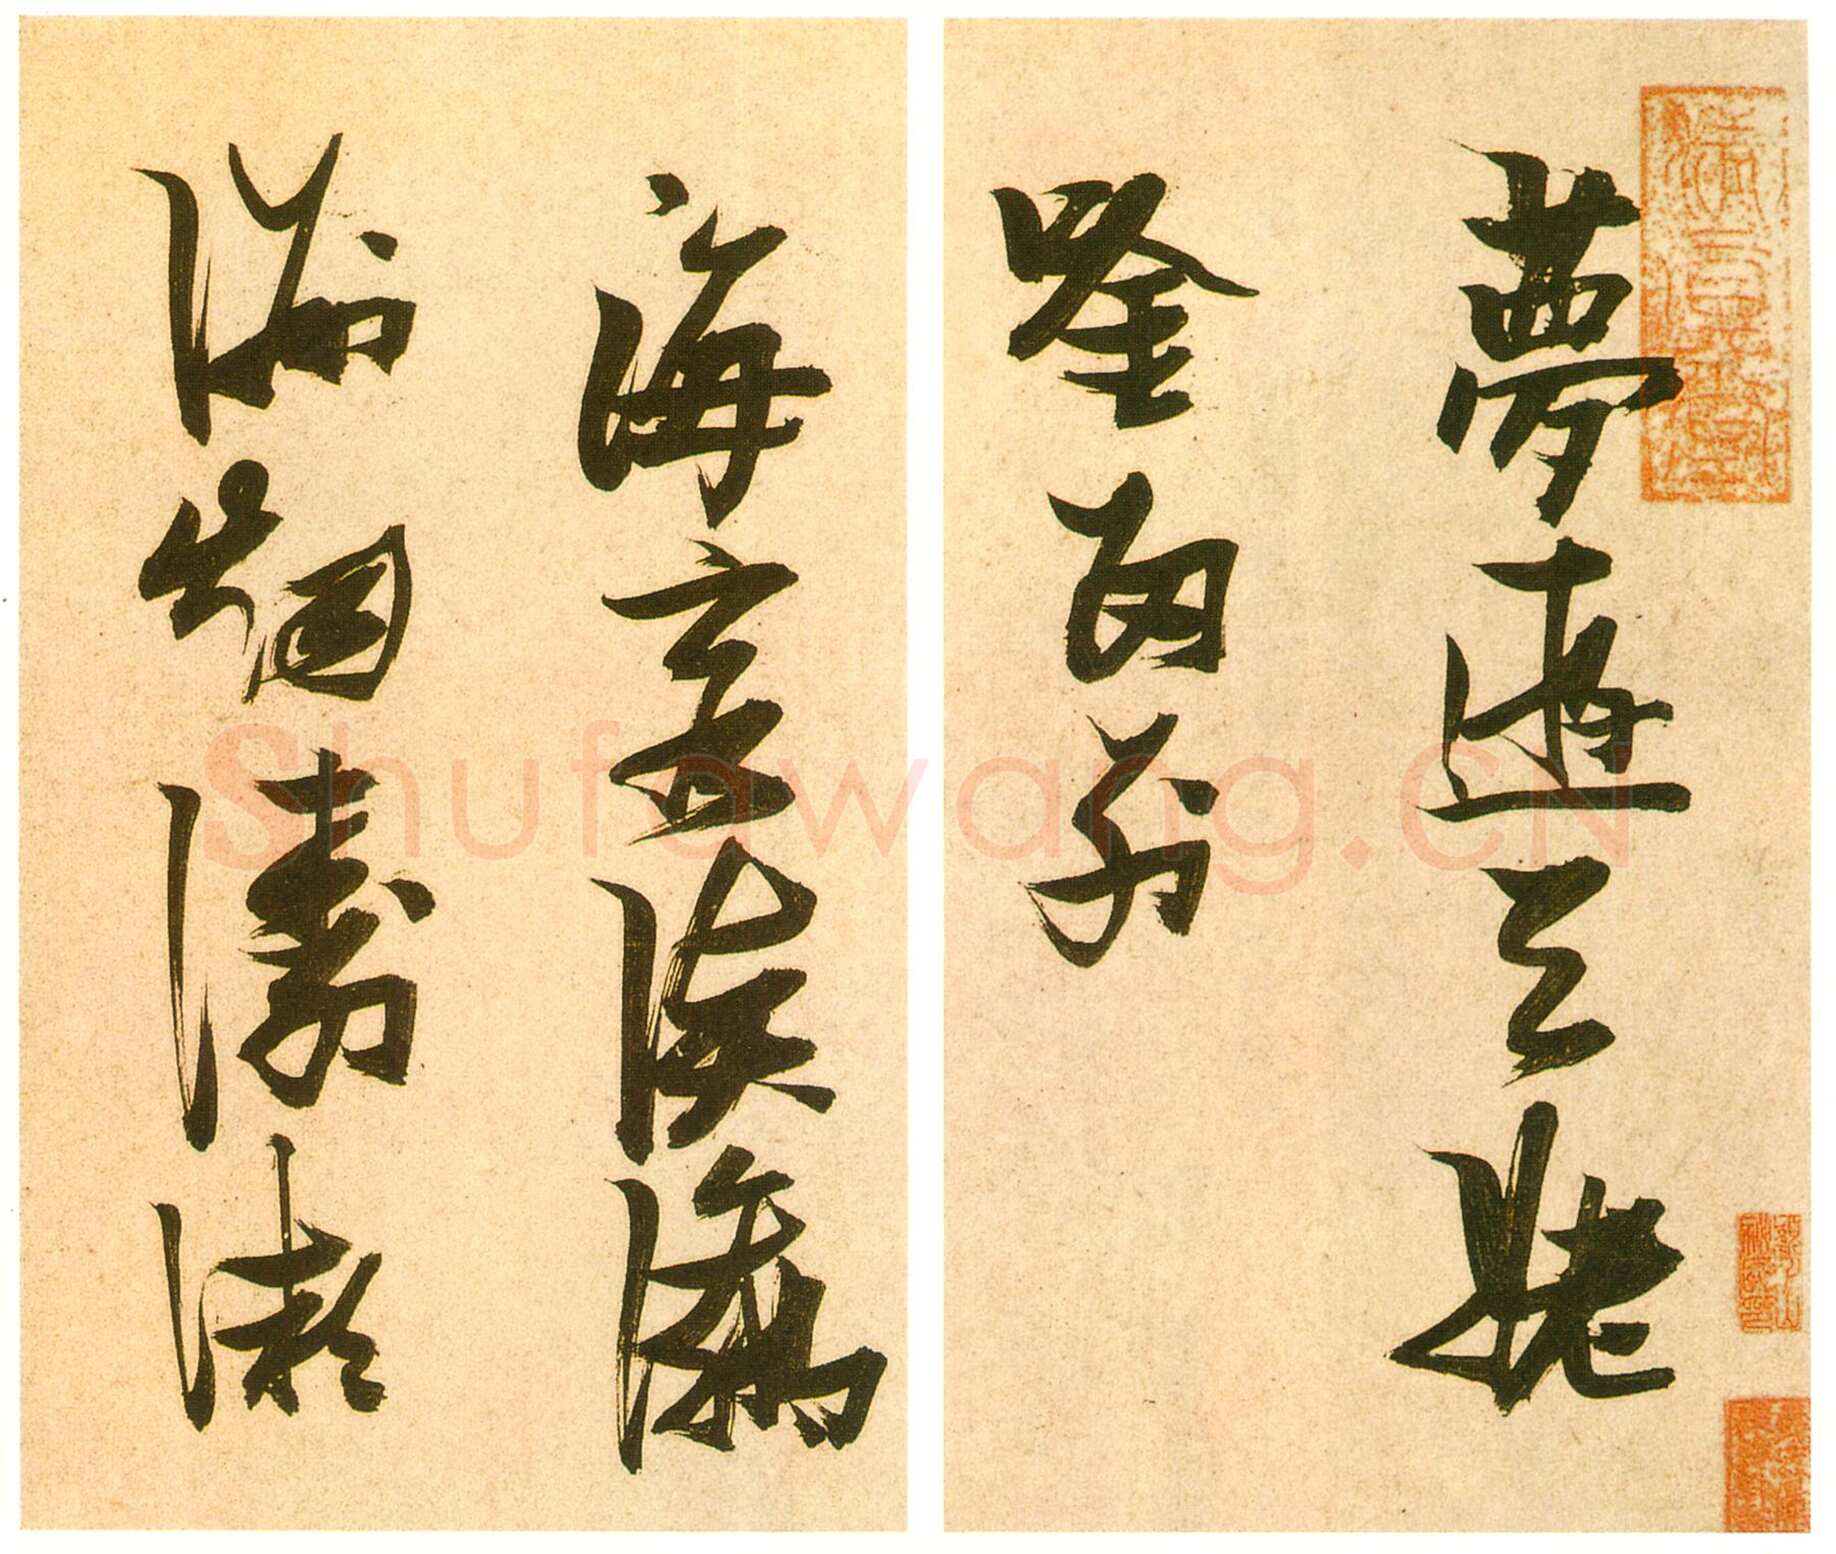 夢遊天姥
唫留別
海客談瀛
洲烟濤微
Shufawang.CN